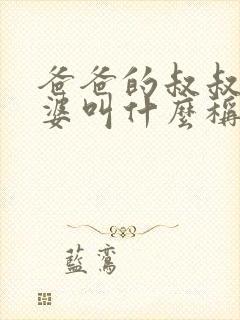 爸爸的叔叔
婆叫什麼稱
藍鸞